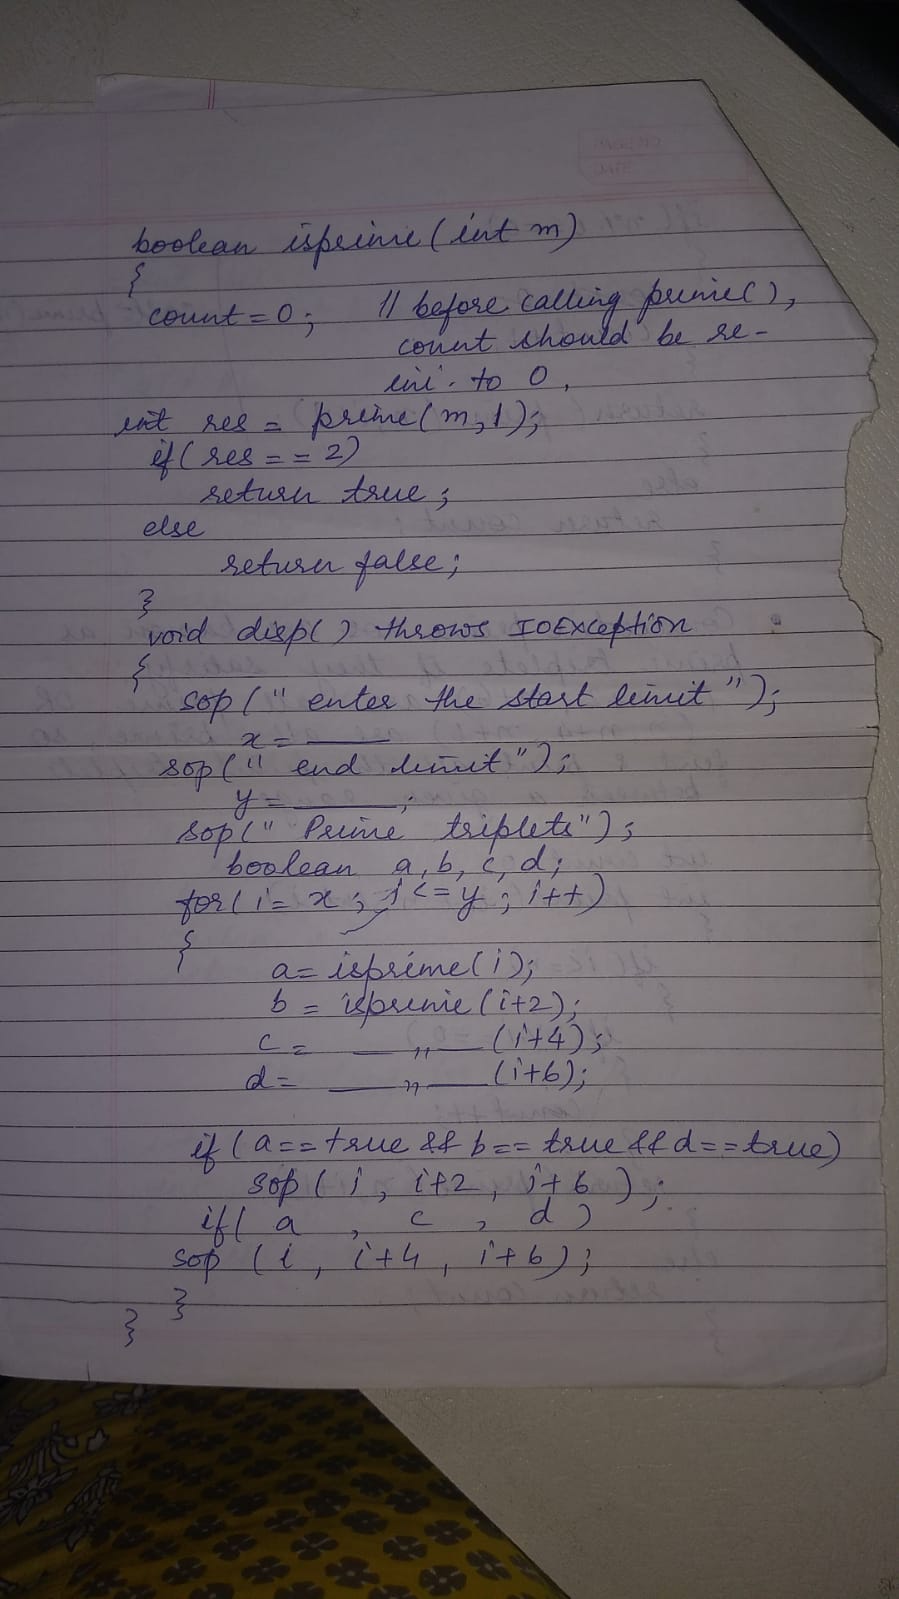 boolean isprime(int m)
{
count=0; // before calling prime(),
count should be re-
ini. to 0.
int res = prime(m,1);
if(res == 2)
return true;
else
return false;
}
void disp() throws IOException
{
sop(" enter the start limit");
x = ____
sop(" end limit");
y = ____;
sop(" Prime triplets");
boolean a, b, c, d;
for(i = x ; i<=y ; i++)
{
a= isprime(i);
b = isprime(i+2);
c = __ " __ (i+4);
d= __ " __ (i+6);
if(a==true && b==true && d==true)
sop(i, i+2, i+6);
if( a , c , d )
sop (i, i+4, i+6);
}
}